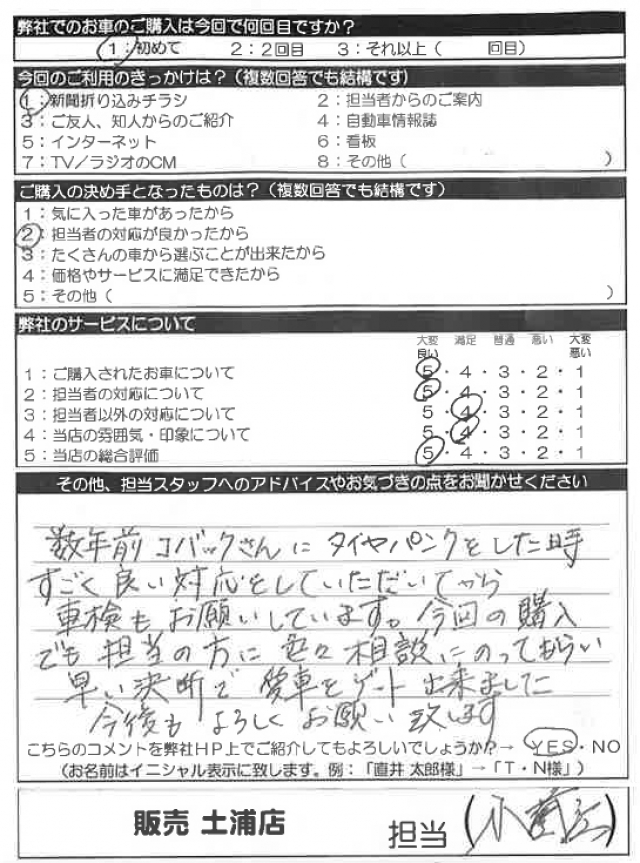 弊社でのお車のご購入は今回で何回目ですか？
1：初めて　2：2回目　3：それ以上（　　回目）
今回のご利用のきっかけは？（複数回答でも結構です）
1：新聞折り込みチラシ　2：担当者からのご案内
3：ご友人、知人からのご紹介　4：自動車情報誌
5：インターネット　6：看板
7：TV／ラジオのCM　8：その他（　　）
ご購入の決め手となったものは？（複数回答でも結構です）
1：気に入った車があったから
2：担当者の対応が良かったから
3：たくさんの車から選ぶことが出来たから
4：価格やサービスに満足できたから
5：その他（　　）
弊社のサービスについて
大変良い　満足　普通　悪い　大変悪い
1：ご購入されたお車について　5・4・3・2・1
2：担当者の対応について　5・4・3・2・1
3：担当者以外の対応について　5・4・3・2・1
4：当店の雰囲気・印象について　5・4・3・2・1
5：当店の総合評価　5・4・3・2・1
その他、担当スタッフへのアドバイスやお気づきの点をお聞かせください
数年前コバックさんにタイヤパンクをした時
すごく良い対応をしていただいてから
車検もお願いしています。今回の購入
でも担当の方に色々相談にのってもらい
早い決断で愛車をゲート出来ました
今後もよろしくお願い致します
こちらのコメントを弊社HP上でご紹介してもよろしいでしょうか？→ YES・NO
（お名前はイニシャル表示に致します。例：「直井 太郎様」→「T・N様」）
販売 土浦店　担当（小